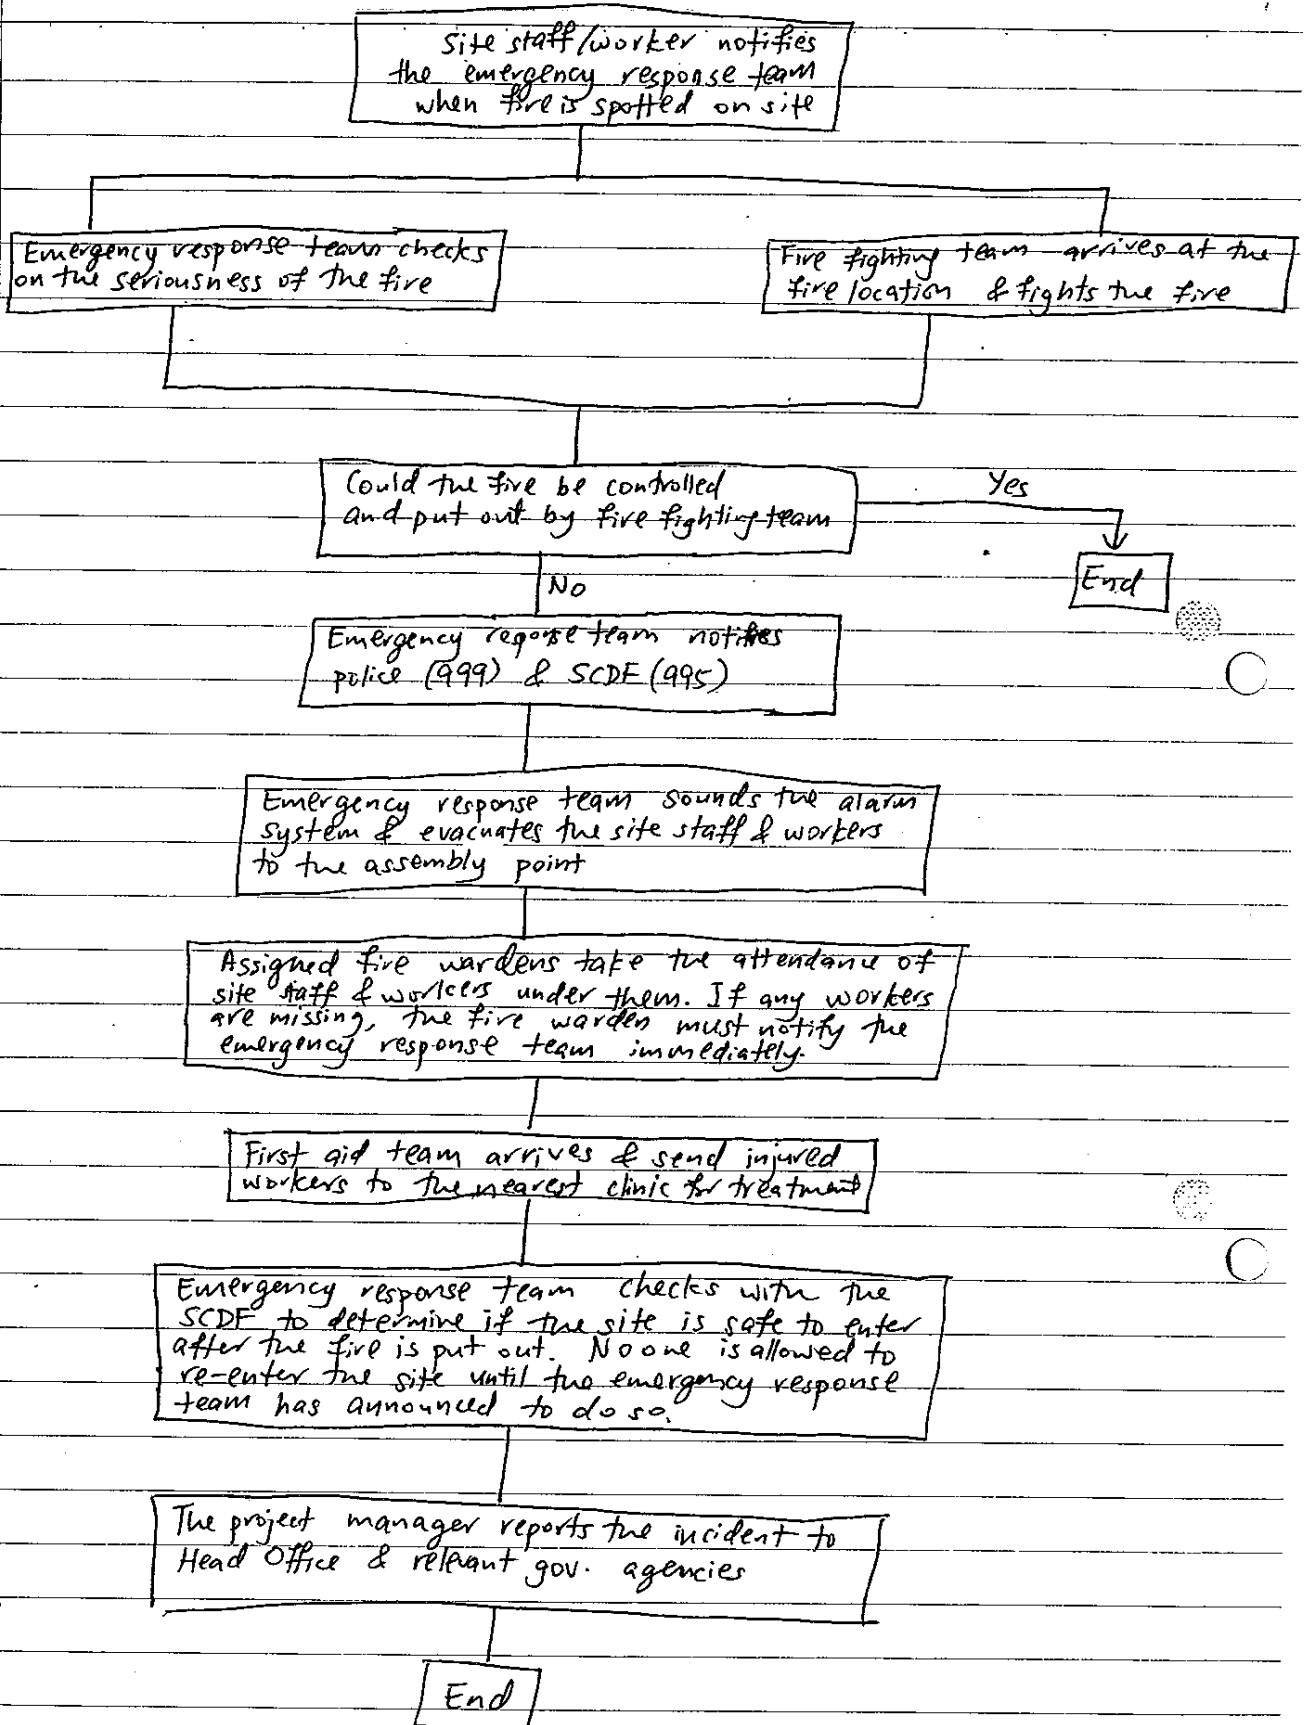 Site staff/worker notifies
the emergency response team
when fire is spotted on site
Emergency response team checks
on the seriousness of the fire
Fire fighting team arrives at the
fire location & fights the fire
Could the fire be controlled
and put out by fire fighting team
Yes
End
No
Emergency reqonse team notifies
police (999) & SCDF (995)
Emergency response team sounds the alarm
system & evacuates the site staff & workers
to the assembly point
Assigned fire wardens take the attendance of
site staff & workers under them. If any workers
are missing, the fire warden must notify the
emergency response team immediately.
First aid team arrives & send injured
workers to the nearest clinic for treatment
Emergency response team checks with the
SCDF to determine if the site is safe to enter
after the fire is put out. No one is allowed to
re-enter the site until the emergency response
team has announced to do so.
The project manager reports the incident to
Head Office & relevant gov. agencies
End